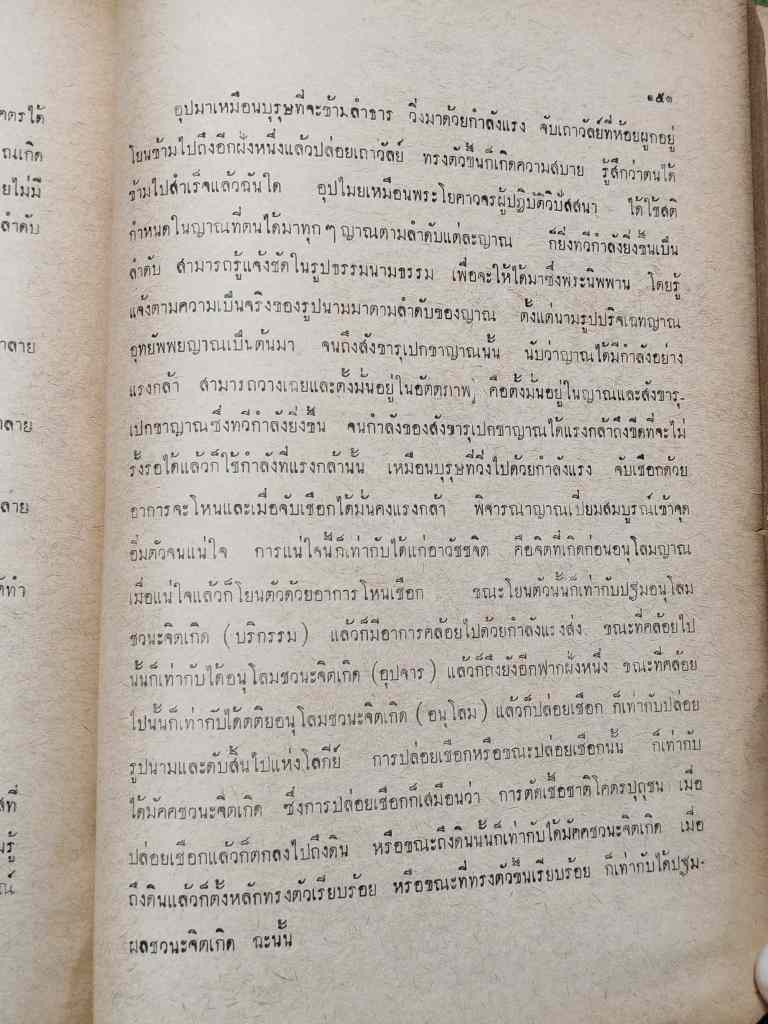 ๑๕๑
อุปมาเหมือนบุรุษที่จะข้ามลำธาร วิ่งมาด้วยกำลังแรง จับเถาวัลย์ที่ห้อยผูกอยู่
โยนข้ามไปถึงอีกฝั่งหนึ่งแล้วปล่อยเถาวัลย์ ทรงตัวขึ้นก็เกิดความสบาย รู้สึกว่าตนได้
ข้ามไปสำเร็จแล้วฉันใด อุปไมยเหมือนพระโยคาวจรผู้ปฏิบัติวิปัสสนา ได้ใช้สติ
กำหนดในญาณที่ตนได้มาทุกๆ ญาณตามลำดับแต่ละญาณ ก็ยิ่งทวีกำลังยิ่งขึ้นเป็น
ลำดับ สามารถรู้แจ้งชัดในรูปธรรมนามธรรม เพื่อจะให้ได้มาซึ่งพระนิพพาน โดยรู้
แจ้งตามความเป็นจริงของรูปนามมาตามลำดับของญาณ ตั้งแต่นามรูปปริจเฉทญาณ
อุทยัพพยญาณเป็นต้นมา จนถึงสังขารุเปกขาญาณนั้น นับว่าญาณได้มีกำลังอย่าง
แรงกล้า สามารถวางเฉยและตั้งมั่นอยู่ในอัตตภาพ คือตั้งมั่นอยู่ในญาณและสังขารุ-
เปกขาญาณซึ่งทวีกำลังยิ่งขึ้น จนกำลังของสังขารุเปกขาญาณได้แรงกล้าถึงขีดที่จะไม่
รั้งรอได้แล้วก็ใช้กำลังที่แรงกล้านั้น เหมือนบุรุษที่วิ่งไปด้วยกำลังแรง จับเชือกด้วย
อาการจะโหนและเมื่อจับเชือกได้มั่นคงแรงกล้า พิจารณาญาณเปี่ยมสมบูรณ์เข้าจุด
อิ่มตัวจนแน่ใจ การแน่ใจนี้ก็เท่ากับได้แก่อาวัชชจิต คือจิตที่เกิดก่อนอนุโลมญาณ
เมื่อแน่ใจแล้วก็โยนตัวด้วยอาการโหนเชือก ขณะโยนตัวนั้นก็เท่ากับปฐมอนุโลม
ชวนะจิตเกิด (บริกรรม) แล้วก็มีอาการคล้อยไปด้วยกำลังแรงส่ง ขณะที่คล้อยไป
นั้นก็เท่ากับได้อนุโลมชวนะจิตเกิด (อุปจาร) แล้วก็ถึงยังอีกฟากฝั่งหนึ่ง ขณะที่คล้อย
ไปนั้นก็เท่ากับได้ตติยอนุโลมชวนะจิตเกิด (อนุโลม) แล้วก็ปล่อยเชือก ก็เท่ากับปล่อย
รูปนามและดับสิ้นไปแห่งโลกีย์ การปล่อยเชือกหรือขณะปล่อยเชือกนั้น ก็เท่ากับ
ได้มัคคชวนะจิตเกิด ซึ่งการปล่อยเชือกก็เสมือนว่า การตัดเชื้อชาติโคตรปุถุชน เมื่อ
ปล่อยเชือกแล้วก็ตกลงไปถึงดิน หรือขณะถึงดินนั้นก็เท่ากับได้มัคคชวนะจิตเกิด เมื่อ
ถึงดินแล้วก็ตั้งหลักทรงตัวเรียบร้อย หรือขณะที่ทรงตัวขึ้นเรียบร้อย ก็เท่ากับได้ปฐม-
ผลชวนะจิตเกิด ฉะนั้น